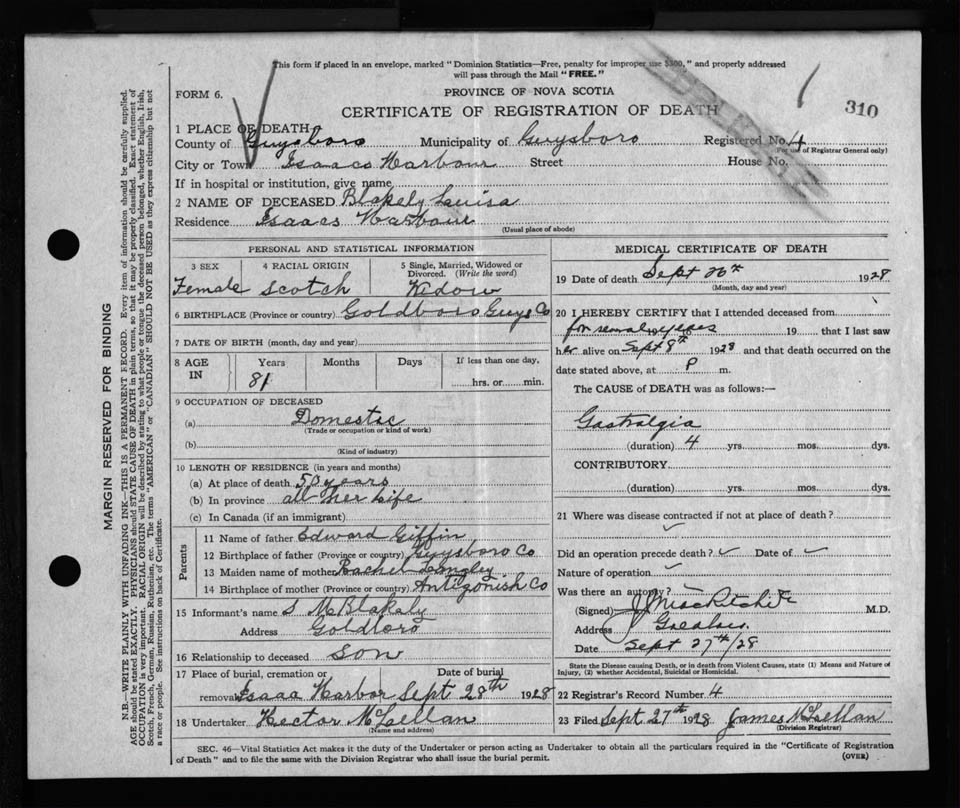 This form if placed in an envelope, marked "Dominion Statistics—Free, penalty for improper use $300," and properly addressed
will pass through the Mail "FREE."
FORM 6.
PROVINCE OF NOVA SCOTIA
CERTIFICATE OF REGISTRATION OF DEATH
310
1 PLACE OF DEATH
County of Guysboro Municipality of Guysboro Registered No. 4
(For use of Registrar General only)
City or Town Isaacs Harbour Street House No.
If in hospital or institution, give name
2 NAME OF DECEASED Blakely Louisa
Residence Isaacs Harbour
(Usual place of abode)
PERSONAL AND STATISTICAL INFORMATION
3 SEX 4 RACIAL ORIGIN 5 Single, Married, Widowed or
Divorced. (Write the word)
Female Scotch Widow
6 BIRTHPLACE (Province or country) Goldboro Guys Co
7 DATE OF BIRTH (month, day and year)
8 AGE IN Years Months Days If less than one day,
81 hrs. or min.
9 OCCUPATION OF DECEASED
(a) Domestic
(Trade or occupation or kind of work)
(b)
(Kind of industry)
10 LENGTH OF RESIDENCE (in years and months)
(a) At place of death years
(b) In province all her life
(c) In Canada (if an immigrant)
Parents
11 Name of father Edward Giffin
12 Birthplace of father (Province or country) Guysboro Co
13 Maiden name of mother Rachel Langley
14 Birthplace of mother (Province or country) Antigonish Co
15 Informant's name S M Blakely
Address Goldboro
16 Relationship to deceased son
17 Place of burial, cremation or Date of burial
removal Isaac Harbor Sept 28th 1928
18 Undertaker Hector McLellan
(Name and address)
MEDICAL CERTIFICATE OF DEATH
19 Date of death Sept 26th 1928
(Month, day and year)
20 I HEREBY CERTIFY that I attended deceased from
for several years 19 that I last saw
her alive on Sept 8th 1928 and that death occurred on the
date stated above, at P m.
The CAUSE of DEATH was as follows:—
Gastralgia
(duration) 4 yrs. mos. dys.
CONTRIBUTORY
(duration) yrs. mos. dys.
21 Where was disease contracted if not at place of death?
Did an operation precede death? Date of
Nature of operation
Was there an autopsy?
(Signed) J MacRitchie M.D.
Address
Date Sept 27th/28
State the Disease causing Death, or in death from Violent Causes, state (1) Means and Nature of
Injury, (2) whether Accidental, Suicidal or Homicidal.
22 Registrar's Record Number 4
23 Filed Sept 27th 1928 James McLellan
(Division Registrar)
SEC. 46—Vital Statistics Act makes it the duty of the Undertaker or person acting as Undertaker to obtain all the particulars required in the "Certificate of Registration
of Death" and to file the same with the Division Registrar who shall issue the burial permit.
(OVER)
MARGIN RESERVED FOR BINDING
N.B.—WRITE PLAINLY WITH UNFADING INK—THIS IS A PERMANENT RECORD. Every item of information should be carefully supplied.
AGE should be stated EXACTLY. PHYSICIANS should STATE CAUSE OF DEATH in plain terms, so that it may be properly classified. Exact statement of
OCCUPATION is very important. RACIAL ORIGIN will be described by stating to what people or tongue the deceased person belonged, whether English, Irish,
Scotch, French, German, Russian, Ruthenian, etc. The terms "AMERICAN" or "CANADIAN" SHOULD NOT BE USED as they express citizenship but not
a race or people. See instructions on back of Certificate.